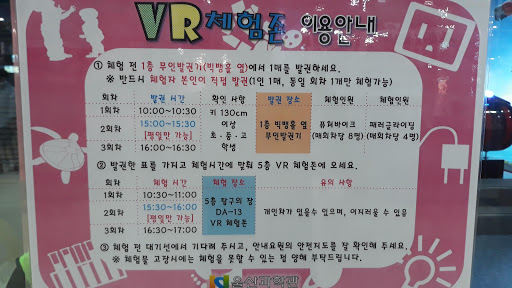 VR 체험존 이용안내
① 체험 전 1층 무인발권기(빅뱅홀 옆)에서 1매를 발권하세요.
※ 반드시 체험자 본인이 직접 발권(1인 1매, 동일 회차 1매만 가능)
회차 발권 시간 확인 사항 발권 장소 체험인원 체험인원
1회차 10:00~10:30
2회차 15:00~15:30
[평일만 가능]
3회차 16:00~16:30
키 130cm
이상
초·중·고
학생
1층 빅뱅홀 옆
무인발권기
퓨쳐바이크
(매회차당 8명)
패러글라이딩
(매회차당 4명)
② 발권한 표를 가지고 체험시간에 맞춰 5층 VR 체험존에 오세요.
회차 체험 시간 체험 장소 유의 사항
1회차 10:30~11:00
2회차 15:30~16:00
[평일만 가능]
3회차 16:30~17:00
5층 탐구의 장
DA-13
VR 체험존
개인차가 있을수 있으며, 어지러울 수 있음
③ 체험 전 대기선에서 기다려 주시고, 안내요원의 안전지도를 잘 확인해 주세요.
※ 체험물 고장시에는 체험을 못할 수 있는 점 양해 부탁드립니다.
울산과학관